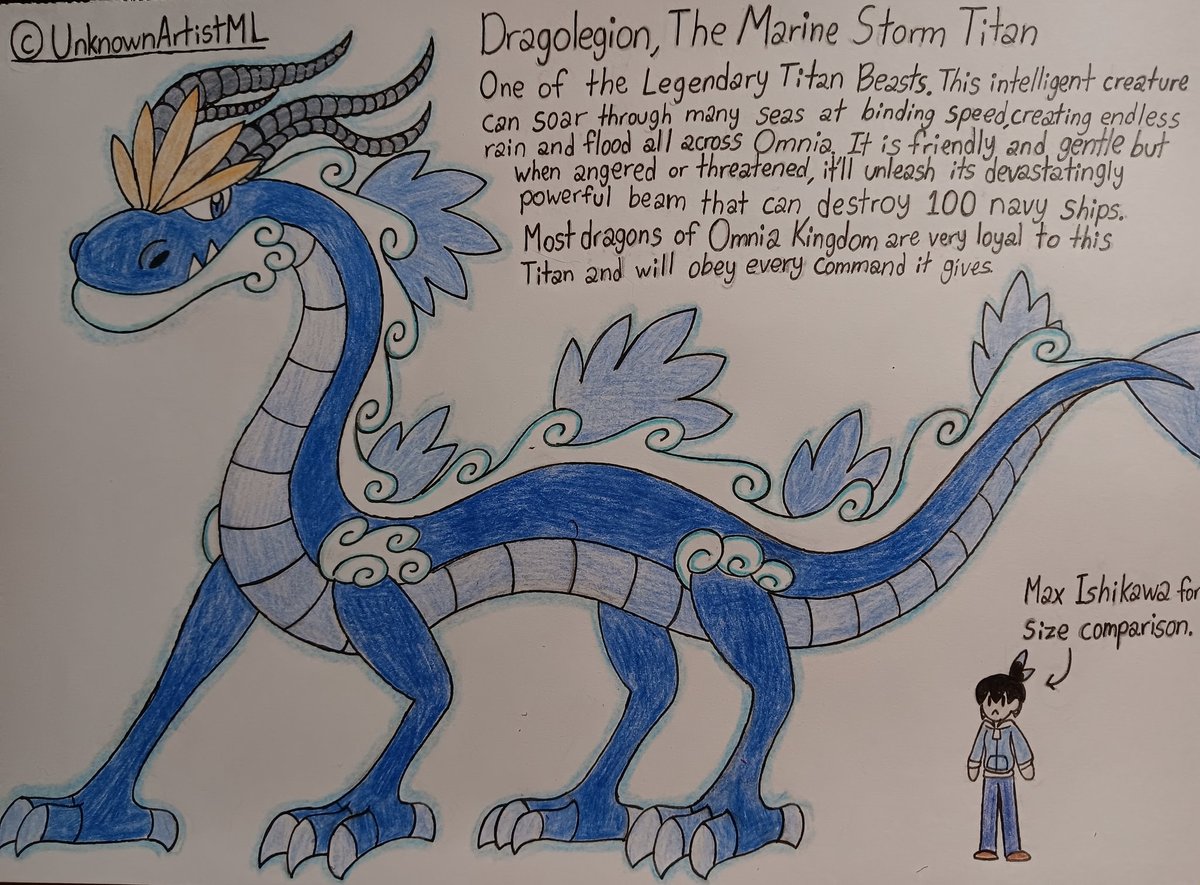 © UnknownArtistML
Dragolegion, The Marine Storm Titan
One of the Legendary Titan Beasts. This intelligent creature
can soar through many seas at binding speed, creating endless
rain and flood all across Omnia. It is friendly and gentle but
when angered or threatened, it'll unleash its devastatingly
powerful beam that can destroy 100 navy ships.
Most dragons of Omnia Kingdom are very loyal to this
Titan and will obey every command it gives.
Max Ishikawa for
size comparison.